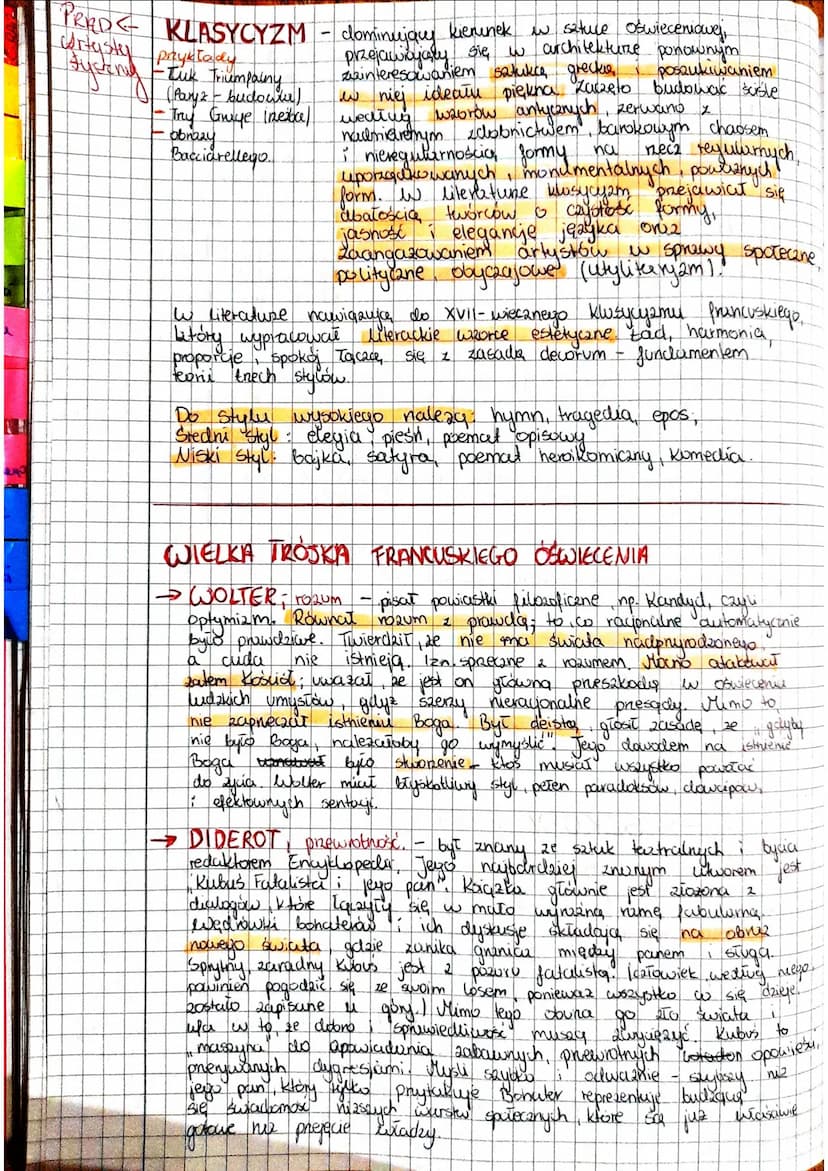 PRĄD
artysty
życzny
KLASYCYZM - dominujący kierunek w sztuce Oświeceniowej,
przejawiający się w architekturze ponownym
zainteresowaniem sztuką grecką i poszukiwaniem
w niej ideału piękna. Zaczęto budować ściśle
według wzorów antycznych, zerwano z
nadmiernym zdobnictwem, barokowym chaosem
i nieregularnością formy na rzecz regularnych,
uporządkowanych, monumentalnych, poważnych
form. W literaturze klasycyzm przejawiał się
dbałością twórców o czystość formy,
jasność i elegancję języka oraz
zaangażowaniem artystów w sprawy społeczne,
polityczne, obyczajowe (utylitaryzm).
przykłady
- Łuk Triumfalny
(Paryż - budowla)
- Trzy Gracje (rzeźba)
- obrazy
Bacciarellego.
W literaturze nawiązują do XVII-wiecznego klasycyzmu francuskiego,
który wypracował literackie wzorce estetyczne. Ład, harmonia,
proporcje, spokój łączą się z zasadą decorum - fundamentem
teorii trzech stylów.
Do stylu wysokiego należą: hymn, tragedia, epos,
Średni styl: elegia, pieśń, poemat opisowy
Niski styl: bajka, satyra, poemat heroikomiczny, komedia.
WIELKA TRÓJKA FRANCUSKIEGO OŚWIECENIA
→ WOLTER, rozum - pisał powiastki filozoficzne, np. Kandyd, czyli
optymizm. Równał rozum z prawdą; to, co racjonalne automatycznie
było prawdziwe. Twierdził, że nie ma świata nadprzyrodzonego,
a cuda nie istnieją. Izn. sprzeczne z rozumem. Mocno atakował
zatem Kościół; uważał, że jest on główną przeszkodą w oświeceniu
ludzkich umysłów, gdyż szerzy nieracjonalne przesądy. Mimo to,
nie zaprzeczał istnieniu Boga. Był deistą, głosił zasadę, że "gdyby
nie było Boga, należałoby go wymyślić". Jego dowodem na istnienie
Boga było stworzenie - ktoś musiał wszystko powołać
do życia. Wolter miał błyskotliwy styl, pełen paradoksów, dowcipów,
i efektownych sentencji.
→ DIDEROT, przewrotność. - był znany ze sztuk teatralnych i bycia
redaktorem Encyklopedii. Jego najbardziej znanym utworem jest
"Kubuś Fatalista i jego pan". Książka głównie jest złożona z
dialogów, które łączyły się w mało wyraźną ramę fabularną.
Wędrówki bohaterów i ich dyskusje składają się na obraz
nowego świata, gdzie zanika granica między panem i sługą.
Sprytny, zaradny Kubuś jest z pozoru fatalistą. (człowiek według niego
powinien pogodzić się ze swoim losem, ponieważ wszystko co się dzieje
zostało zapisane u góry.) Mimo tego oburza go zło świata i
ufa w to, że dobro i sprawiedliwość muszą zwyciężyć. Kubuś to
"maszyna" do opowiadania zabawnych, przewrotnych opowieści,
przerywanych dygresjami. Myśli szybko i odważnie - szybszy niż
jego pan, który tylko przytakuje. Bohater reprezentuje budzącą
się świadomość niższych warstw społecznych, które są już właściwie
gotowe na przejęcie władzy.